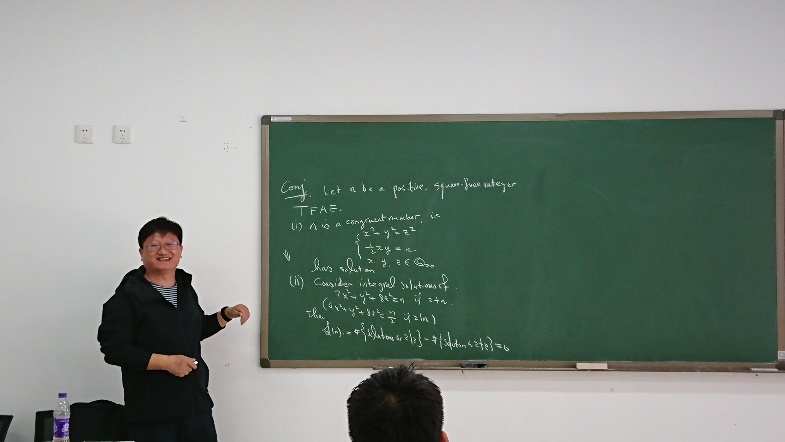 Conj. Let n be a positive square-free integer
TFAE.
(i) n is a congruent number, ie
x² + y² = z²
½xy = n
x, y, z ∈ ℚ>0
has solution
(ii) Consider integral solutions of
x² + y² + 8z² = n if 2∤n
(4x² + y² + 8z² = n/2 if 2|n)
Then